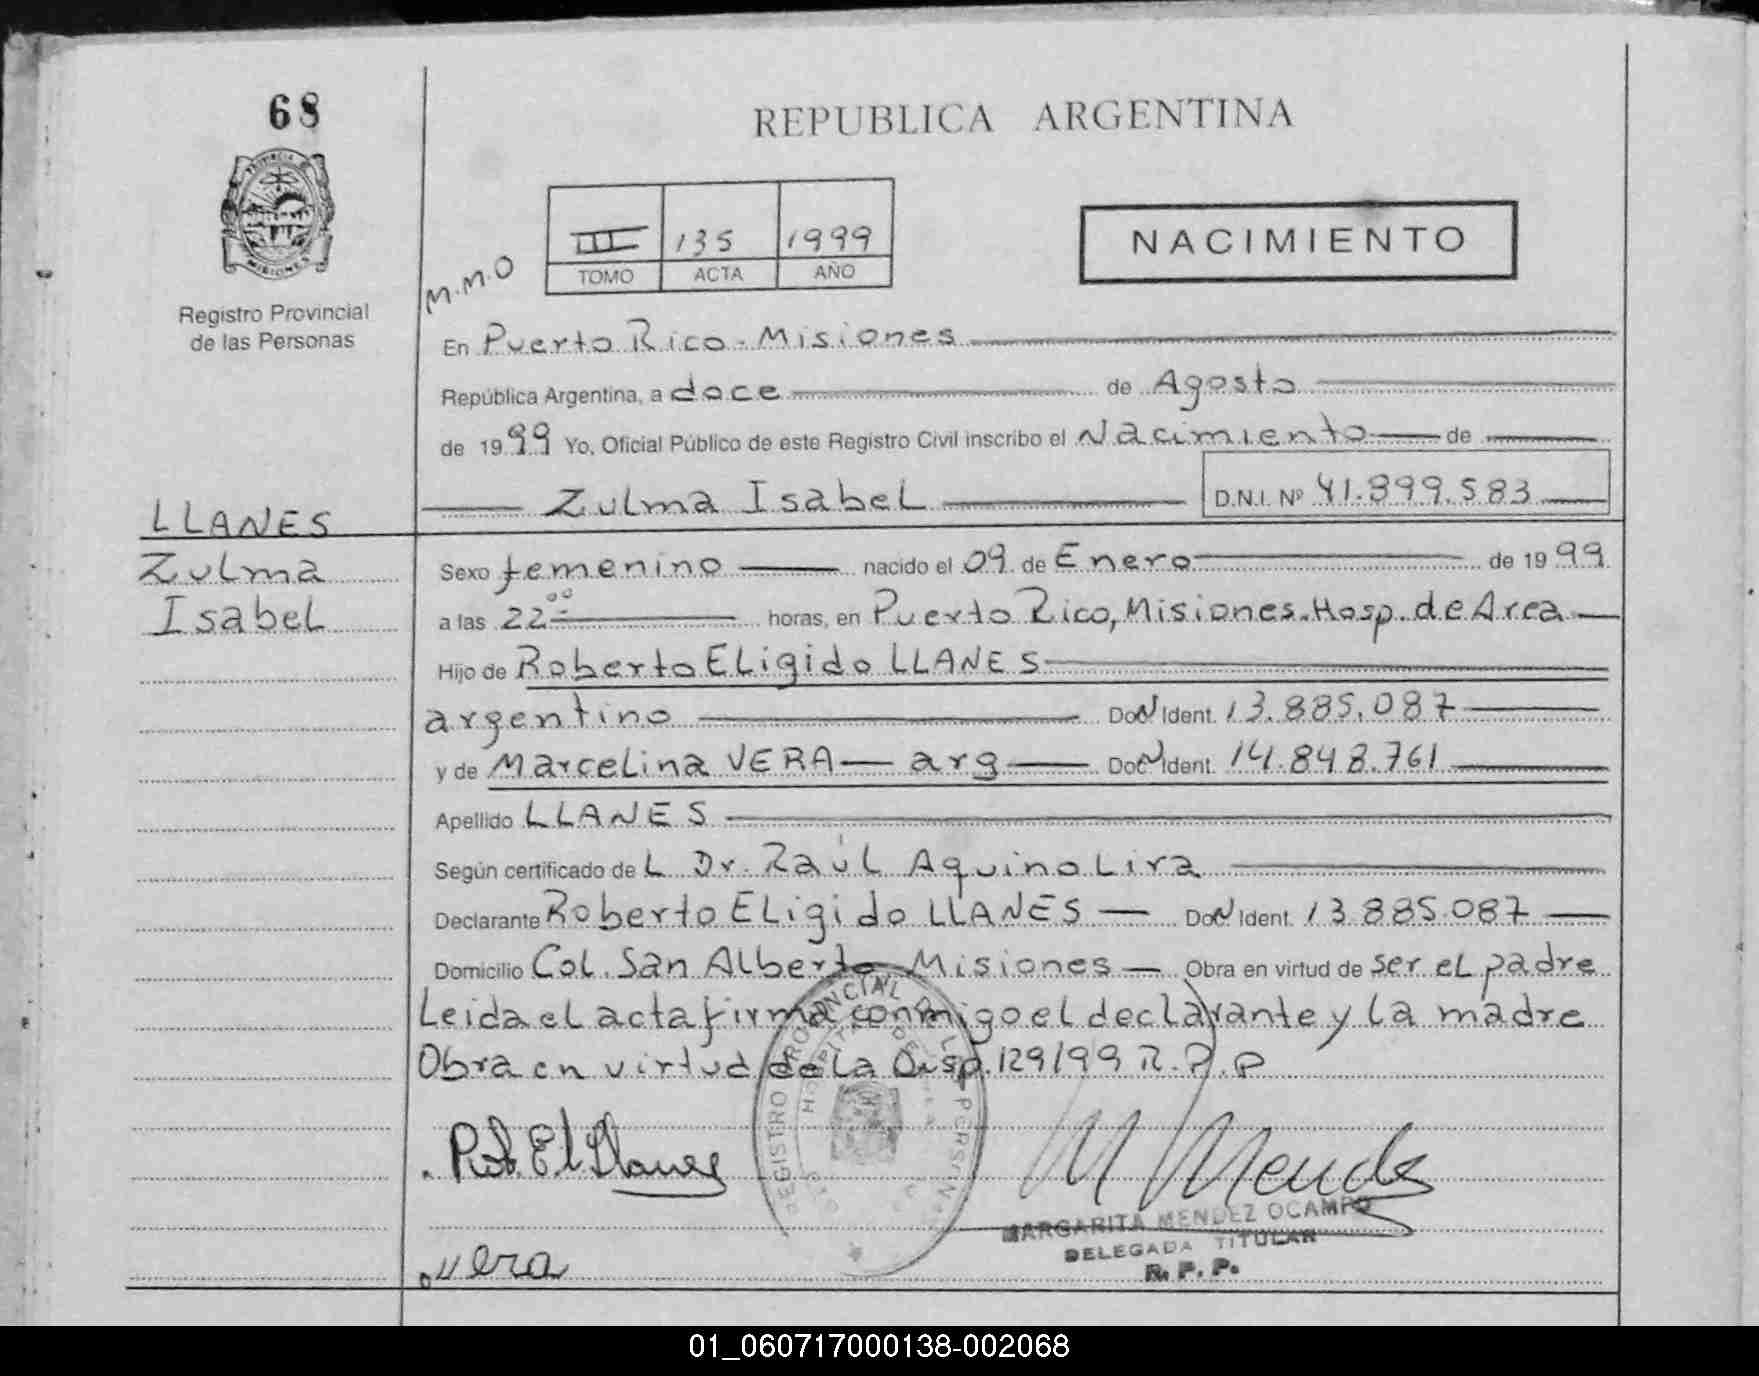 68
REPUBLICA ARGENTINA
III 135 1999
TOMO ACTA AÑO
NACIMIENTO
M.M.O
PROVINCIA DE
MISIONES
Registro Provincial
de las Personas
En Puerto Rico - Misiones
República Argentina, a doce de Agosto
de 1999 Yo, Oficial Público de este Registro Civil inscribo el Nacimiento de
Zulma IsabeL D.N.I. Nº 41.899.583
LLANES
ZuLma
IsabeL
Sexo femenino nacido el 09 de Enero de 1999
a las 22 00 horas, en Puerto Rico, Misiones. Hosp. de Area
Hijo de Roberto ELigido LLANES
argentino Doc Ident. 13.885.087
y de MarceLina VERA arg Doc Ident. 14.848.761
Apellido LLANES
Según certificado de L Dr. RaúL Aquino Lira
Declarante Roberto ELigido LLANES Doc Ident. 13.885.087
Domicilio CoL. San ALberto Misiones Obra en virtud de ser eL padre
Leida eL acta firma conmigo el declarante y La madre
Obra en virtud de La Disp. 129/99 R.P.P
REGISTRO PROVINCIAL DE L PERSONAS
Rob. El. Llanes
M Mendez
MARGARITA MENDEZ OCAMPO
DELEGADA TITULAR
R. P. P.
Vera
01_060717000138-002068